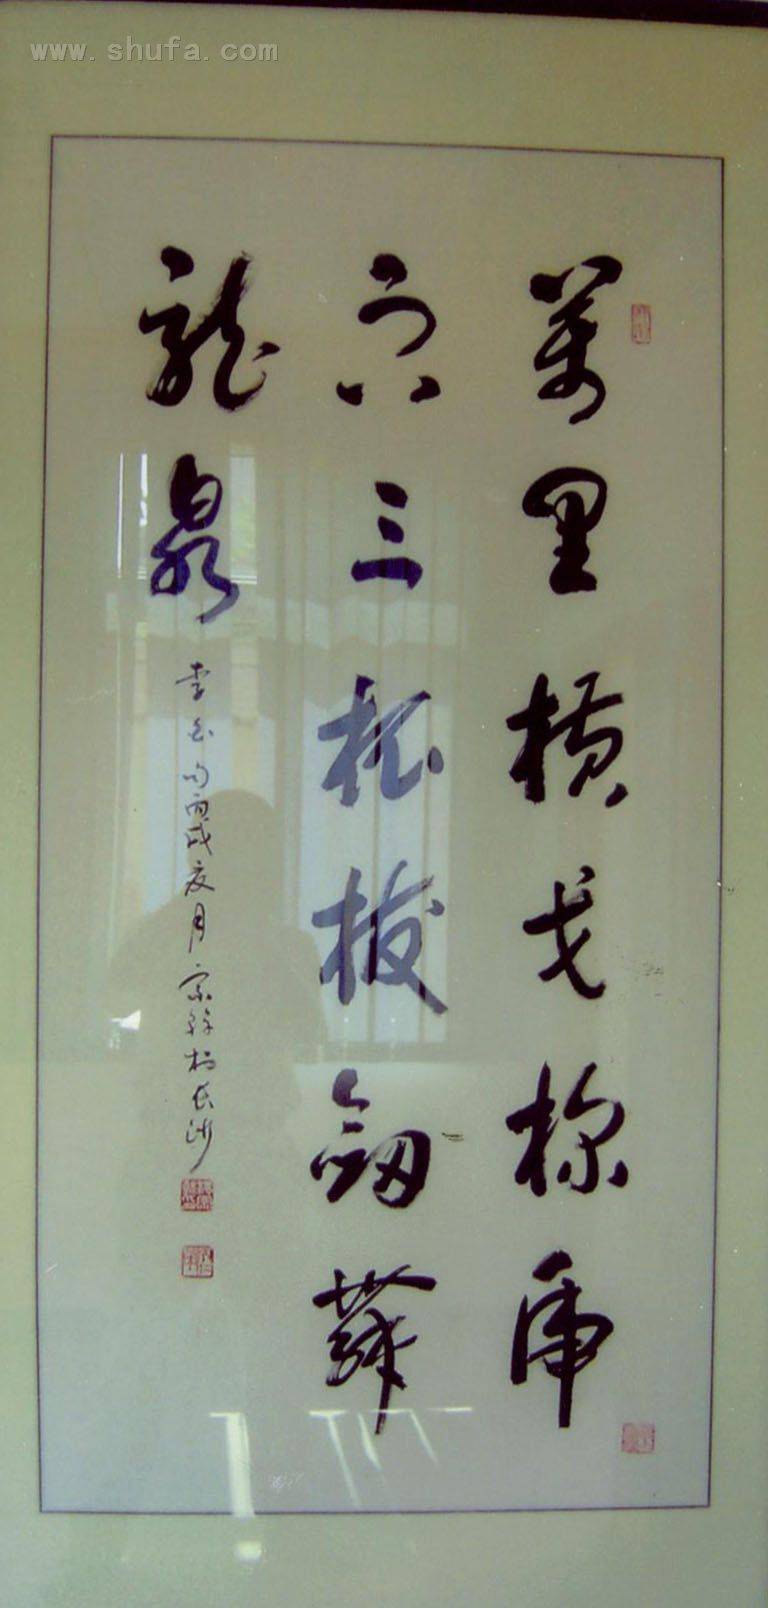 www.shufa.com
萬里橫戈探虎
穴三杯拔劍舞
龍泉
李白句丙戌夏月宗𫐄於長沙